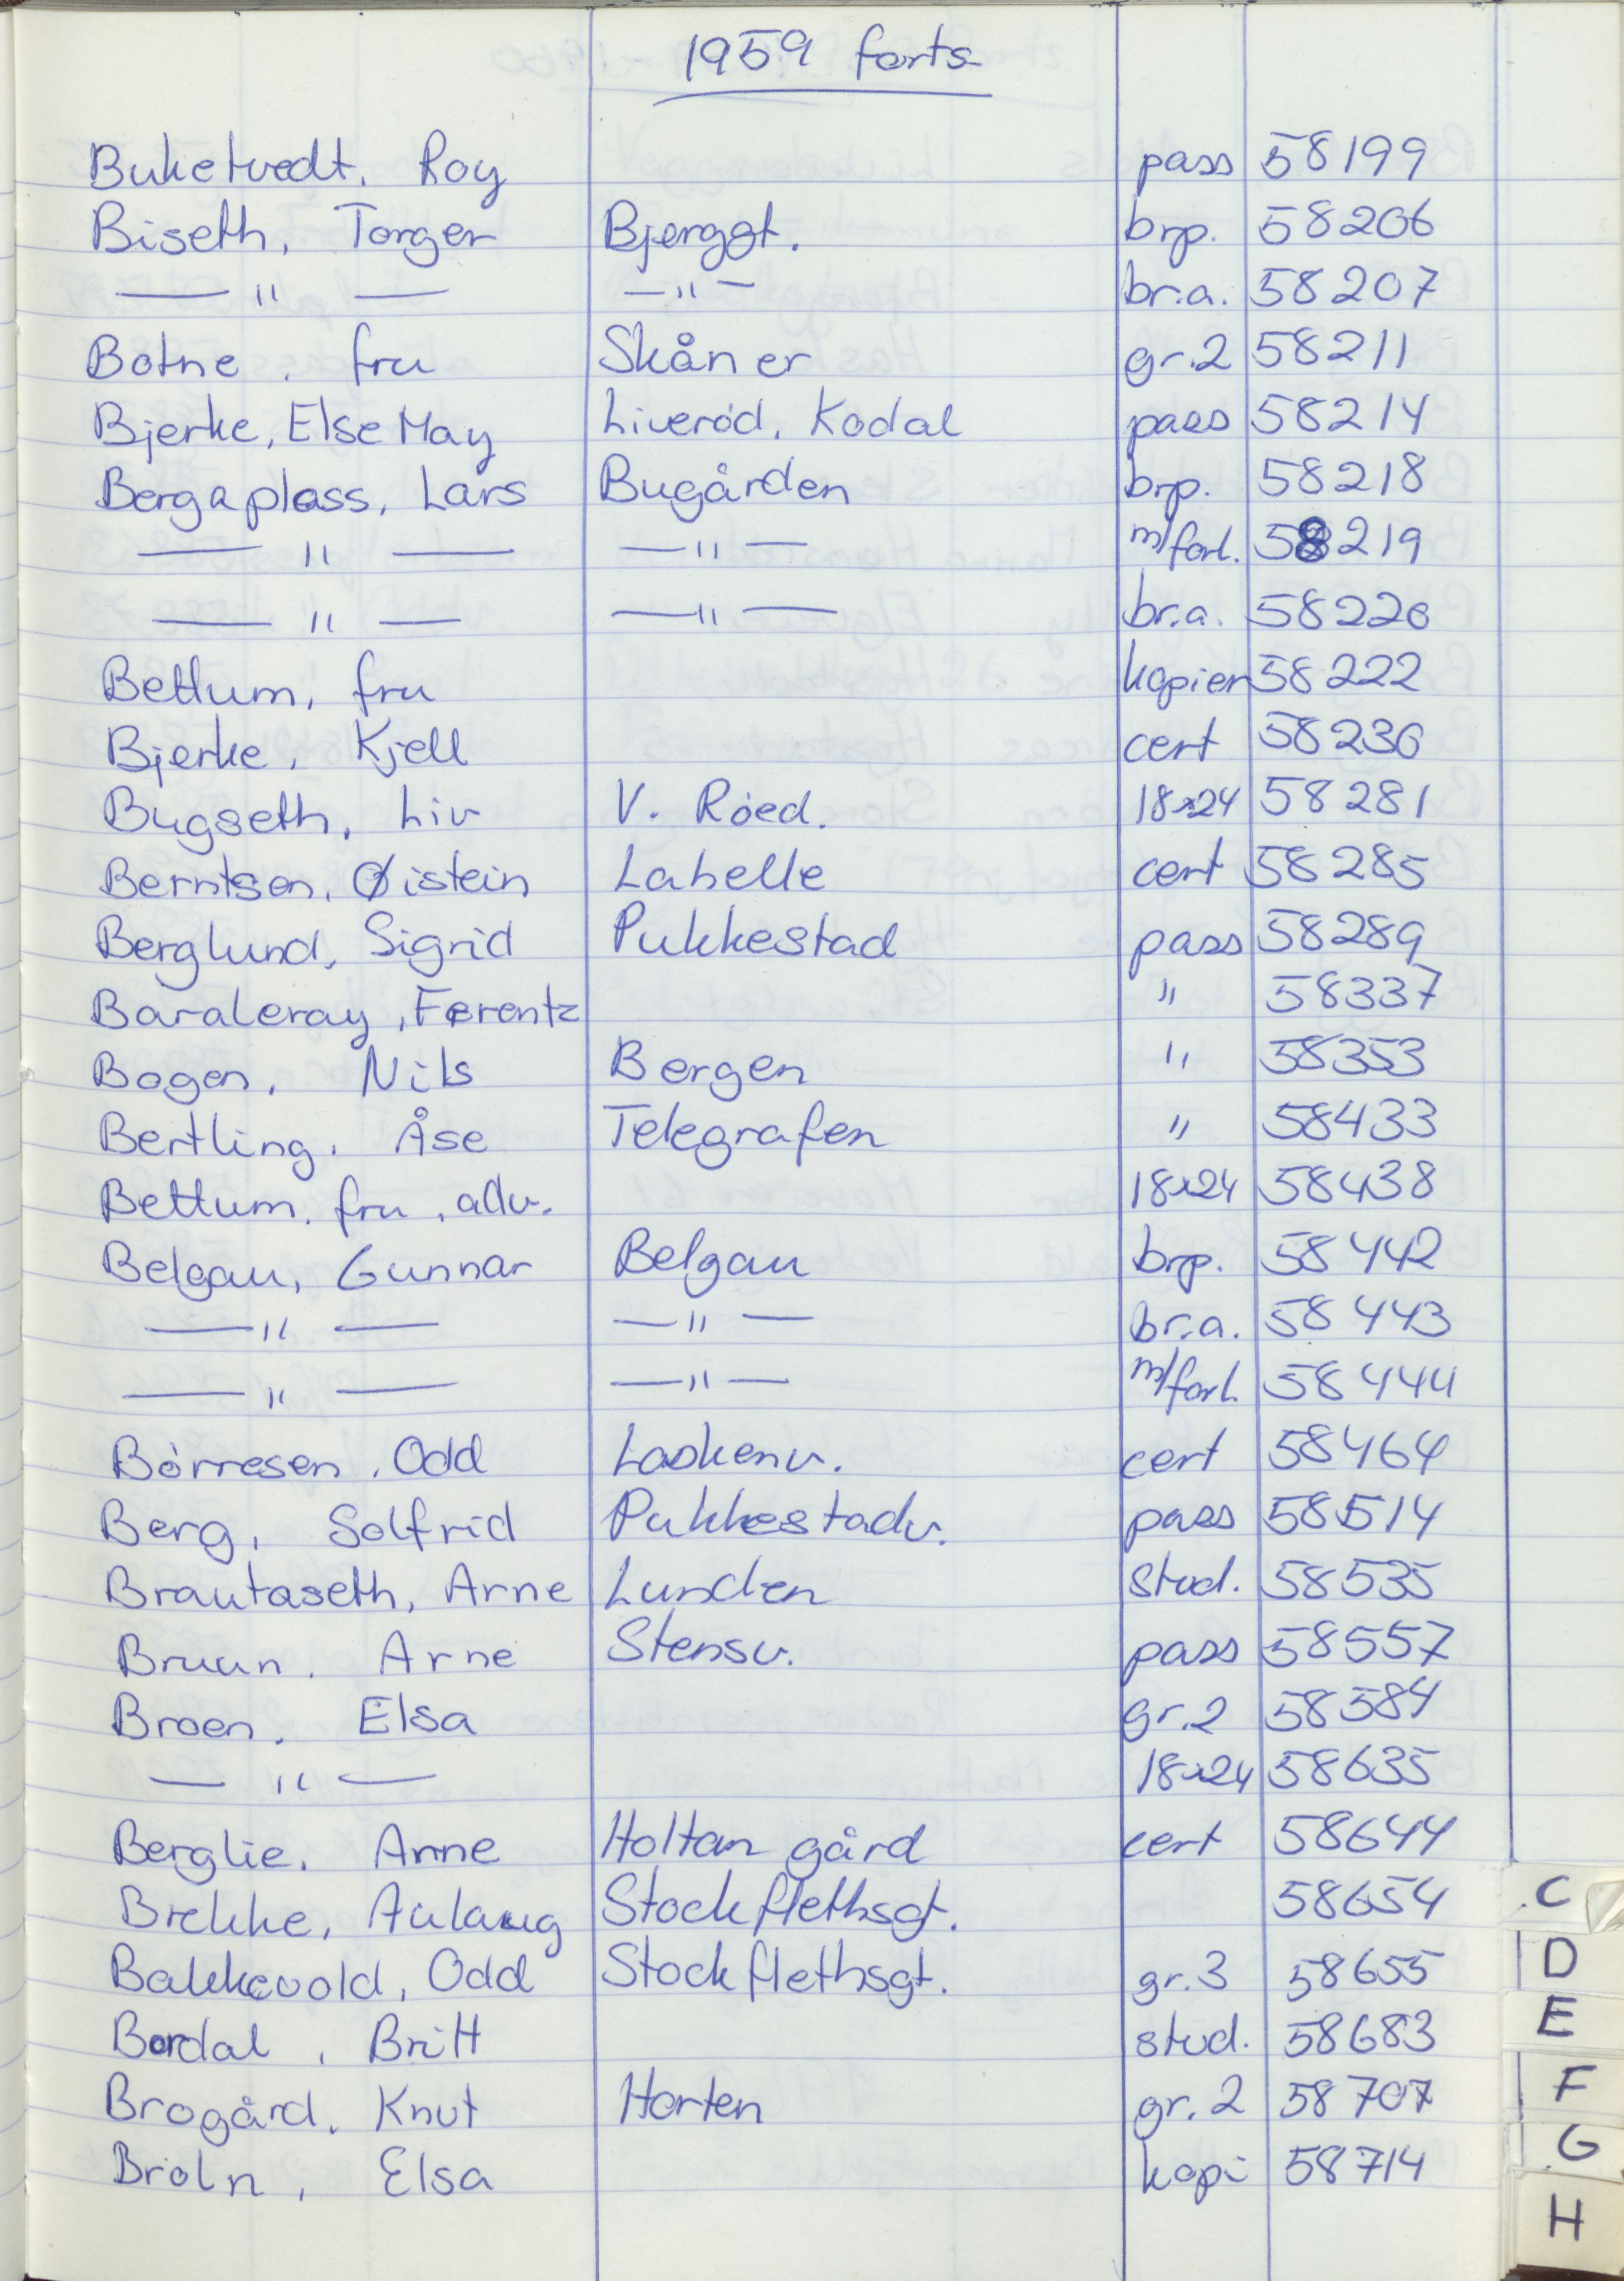 1959 forts
Buketvedt. Roy pass 58199
Biseth, Torger Bjerggt. brp. 58206
— " — — " — br.a. 58207
Botne. fru Skåner gr.2 58211
Bjerke, Else May Liverød, Kodal pass 58214
Bergaplass, Lars Bugården brp. 58218
— " — — " — m/forl. 58219
— " — — " — br.a. 58220
Bettum, fru kopier 58222
Bjerke, Kjell cert 58230
Bugseth, Liv V. Røed. 18x24 58281
Berntsen, Øistein Labelle cert 58285
Berglund, Sigrid Pukkestad pass 58289
Baraleray, Ferentz " 58337
Bogen, Nils Bergen " 58353
Bertling. Åse Telegrafen " 58433
Bettum. fru, adv. 18x24 58438
Belgau, Gunnar Belgau brp. 58442
— " — — " — br.a. 58443
— " — — " — m/forl. 58444
Børresen, Odd Laskenv. cert 58464
Berg, Solfrid Pukkestadv. pass 58514
Brautaseth, Arne Lunden stud. 58535
Bruun. Arne Stensv. pass 58557
Broen. Elsa gr.2 58584
— " — 18x24 58635
Berglie. Anne Holtan gård cert 58644
Brekke, Aulaug Stockflethsgt. 58654
Bakkevold, Odd Stockflethsgt. gr.3 58655
Bordal, Britt stud. 58683
Brogård. Knut Horten gr.2 58707
Broln, Elsa kopi 58714
C
D
E
F
G
H